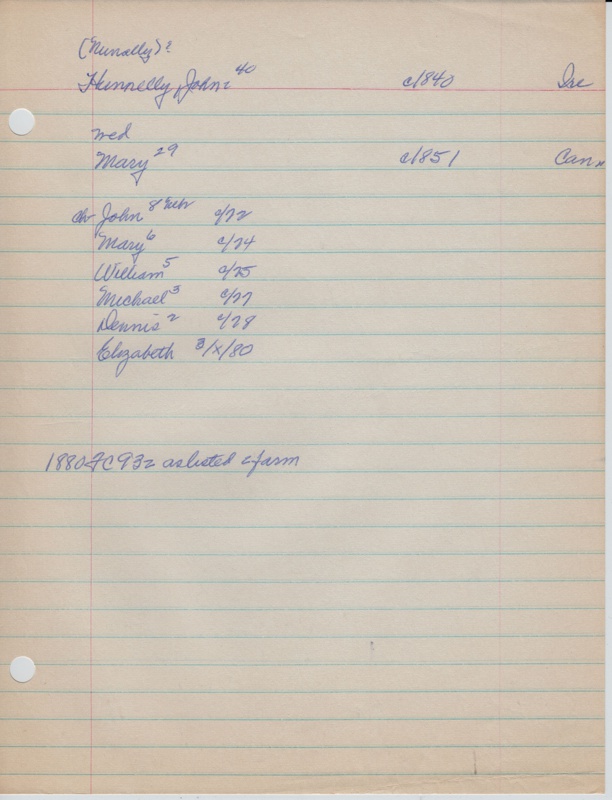 (Nunally)?
Hunnelly, John 40 c/840 Ire
wed
Mary 29 c/851 Can
ch John 8 c/72
Mary 6 c/74
William 5 c/75
Michael 3 c/77
Dennis 2 c/78
Elizabeth 3/x/80
1880 FC 932 as listed farm